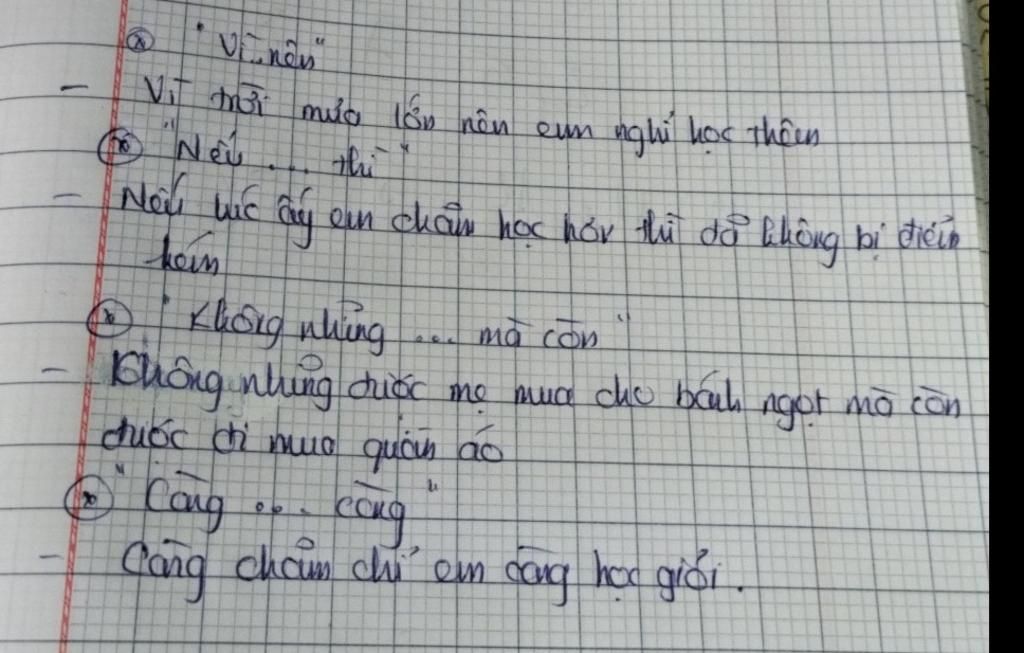 ⊗ "Vì..nên"
- Vì trời mưa lớn nên em nghỉ học thêm
⊗ "Nếu .... thì"
- Nếu lúc ấy em chăm học hơn thì đã không bị điểm
kém
⊗ "Không những ... mà còn"
- Không những được mẹ mua cho bánh ngọt mà còn
được đi mua quần áo
⊗ "Càng ... càng"
- Càng chăm chỉ em càng học giỏi.